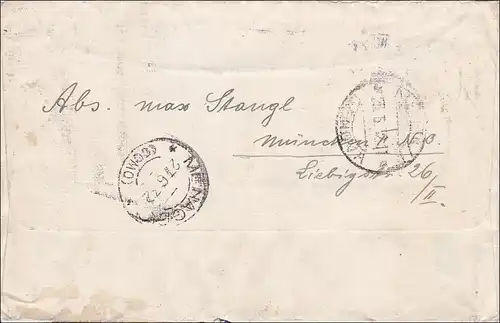 Abs. Max Stangl
München N.O.
Liebigstr. 26/II
MENAGGIO
(COMO)